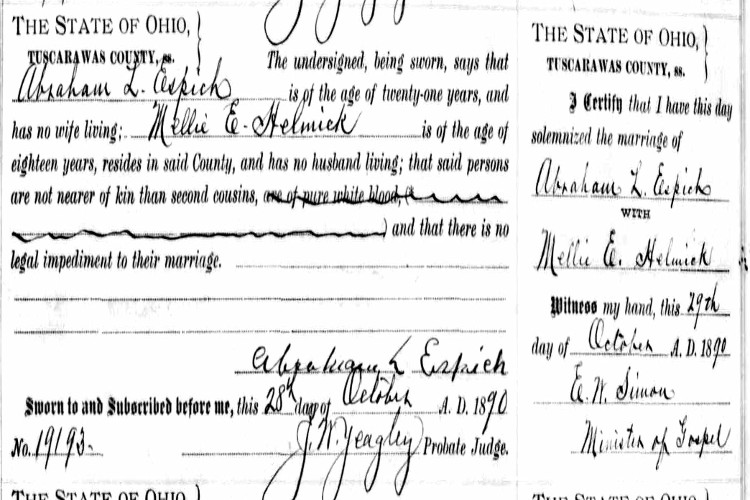 THE STATE OF OHIO,
TUSCARAWAS COUNTY, ss.
The undersigned, being sworn, says that
Abraham L. Espich is of the age of twenty-one years, and
has no wife living; Mellie E. Helmick is of the age of
eighteen years, resides in said County, and has no husband living; that said persons
are not nearer of kin than second cousins, are of pure white blood, (
) and that there is no
legal impediment to their marriage.
Abraham L Espich
Sworn to and Subscribed before me, this 28th day of October A. D. 1890
No. 19193 J. W. Yeagley Probate Judge.
THE STATE OF OHIO,
THE STATE OF OHIO,
TUSCARAWAS COUNTY, ss.
I Certify that I have this day
solemnized the marriage of
Abraham L. Espich
WITH
Mellie E. Helmick
Witness my hand, this 29th
day of October A. D. 1890
E. W. Simon
Minister of Gospel
THE STATE OF OHIO,